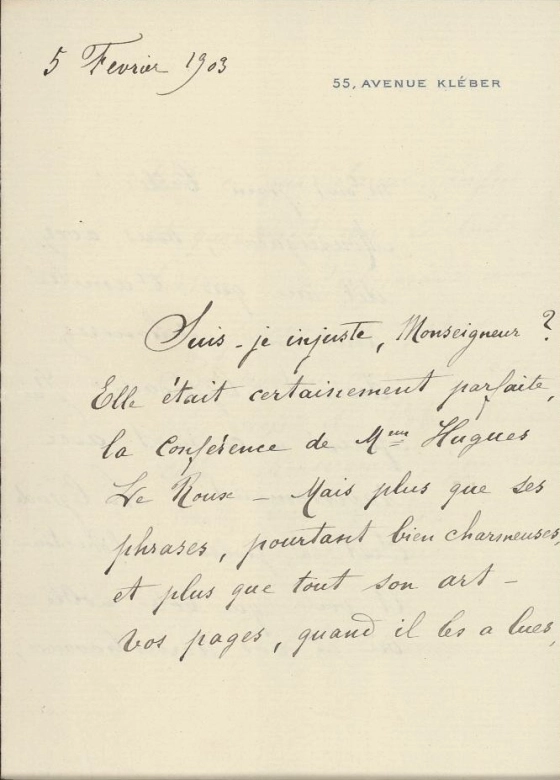 5 Fevrier 1903
55, AVENUE KLÉBER
Suis-je injuste, Monseigneur ?
Elle était certainement parfaite,
la Conférence de Mr Hugues
Le Roux — Mais plus que ses
phrases, pourtant bien charmeuses,
et plus que tout son art —
vos pages, quand il les a lues,